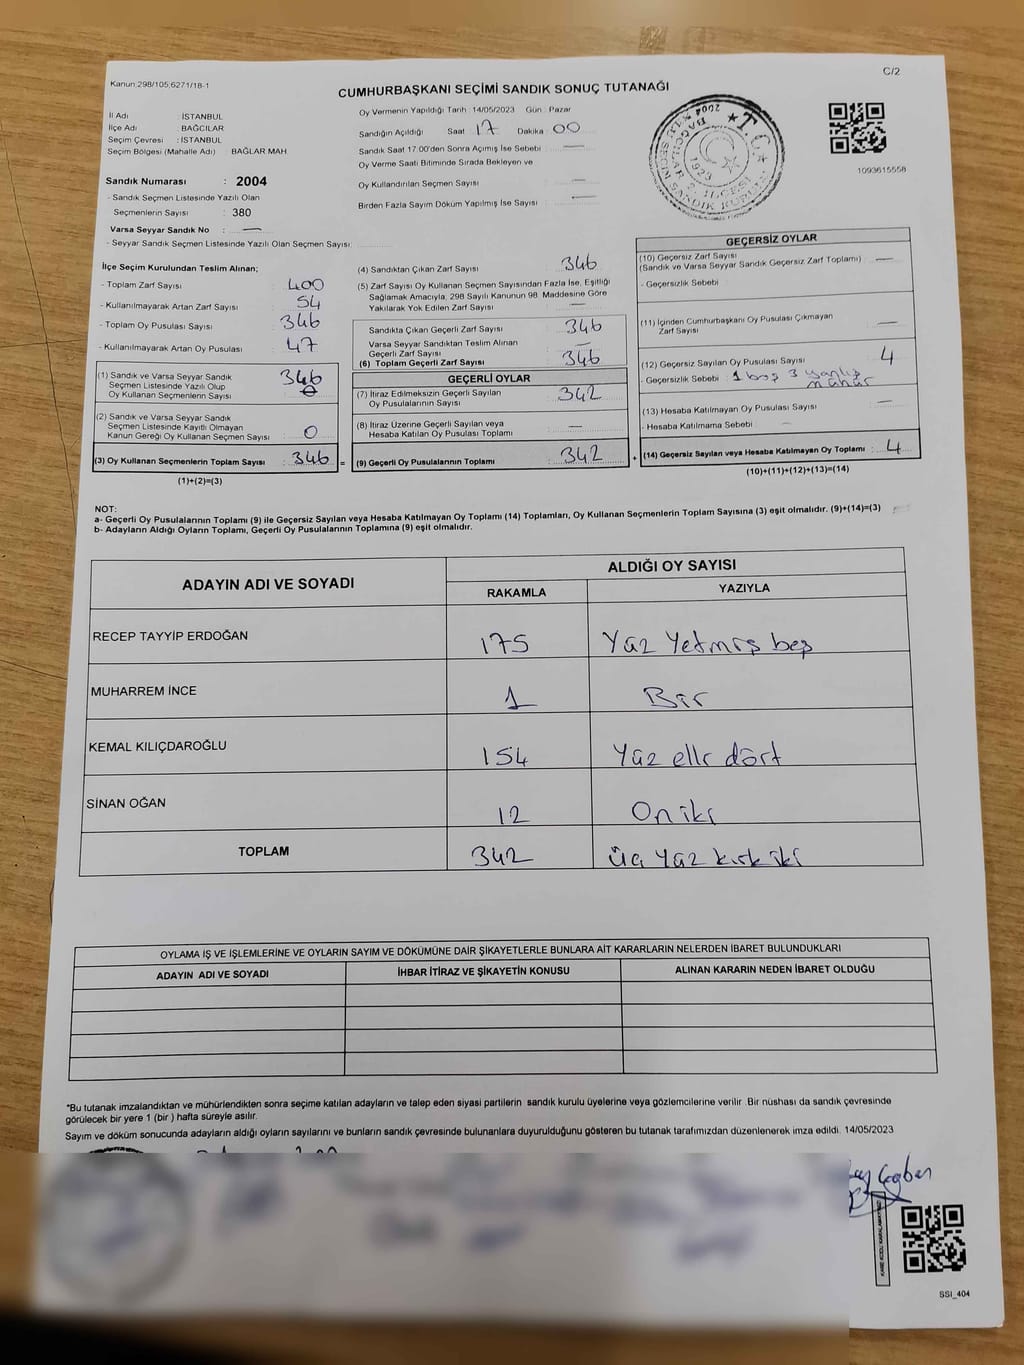 C/2
Kanun:298/105;6271/18-1
CUMHURBAŞKANI SEÇİMİ SANDIK SONUÇ TUTANAĞI
İl Adı : İSTANBUL
İlçe Adı : BAĞCILAR
Seçim Çevresi : İSTANBUL
Seçim Bölgesi (Mahalle Adı) : BAĞLAR MAH.
Sandık Numarası : 2004
- Sandık Seçmen Listesinde Yazılı Olan
Seçmenlerin Sayısı : 380
Varsa Seyyar Sandık No : —
- Seyyar Sandık Seçmen Listesinde Yazılı Olan Seçmen Sayısı:
Oy Vermenin Yapıldığı Tarih : 14/05/2023 Gün : Pazar
Sandığın Açıldığı Saat 17 Dakika : 00
Sandık Saat 17:00'den Sonra Açımış İse Sebebi : —
Oy Verme Saati Bitiminde Sırada Bekleyen ve
Oy Kullandırılan Seçmen Sayısı : —
Birden Fazla Sayım Döküm Yapılmış İse Sayısı : —
T.C.
1923
1093615558
İlçe Seçim Kurulundan Teslim Alınan;
- Toplam Zarf Sayısı : 400
- Kullanılmayarak Artan Zarf Sayısı : 54
- Toplam Oy Pusulası Sayısı : 346
- Kullanılmayarak Artan Oy Pusulası : 47
(1) Sandık ve Varsa Seyyar Sandık
Seçmen Listesinde Yazılı Olup
Oy Kullanan Seçmenlerin Sayısı : 346
(2) Sandık ve Varsa Seyyar Sandık
Seçmen Listesinde Kayıtlı Olmayan
Kanun Gereği Oy Kullanan Seçmen Sayısı : 0
(3) Oy Kullanan Seçmenlerin Toplam Sayısı : 346 =
(1)+(2)=(3)
(4) Sandıktan Çıkan Zarf Sayısı : 346
(5) Zarf Sayısı Oy Kullanan Seçmen Sayısından Fazla İse, Eşitliği
Sağlamak Amacıyla, 298 Sayılı Kanunun 98. Maddesine Göre
Yakılarak Yok Edilen Zarf Sayısı : —
Sandıkta Çıkan Geçerli Zarf Sayısı : 346
Varsa Seyyar Sandıktan Teslim Alınan
Geçerli Zarf Sayısı : —
(6) Toplam Geçerli Zarf Sayısı : 346
GEÇERLİ OYLAR
(7) İtiraz Edilmeksizin Geçerli Sayılan
Oy Pusulalarının Sayısı : 342
(8) İtiraz Üzerine Geçerli Sayılan veya
Hesaba Katılan Oy Pusulası Toplamı : —
(9) Geçerli Oy Pusulalarının Toplamı : 342 +
GEÇERSİZ OYLAR
(10) Geçersiz Zarf Sayısı : —
(Sandık ve Varsa Seyyar Sandık Geçersiz Zarf Toplamı)
- Geçersizlik Sebebi :
(11) İçinden Cumhurbaşkanı Oy Pusulası Çıkmayan
Zarf Sayısı : —
(12) Geçersiz Sayılan Oy Pusulası Sayısı : 4
- Geçersizlik Sebebi : 1 boş 3 yanlış
mühür
(13) Hesaba Katılmayan Oy Pusulası Sayısı : —
- Hesaba Katılmama Sebebi : —
(14) Geçersiz Sayılan veya Hesaba Katılmayan Oy Toplamı : 4
(10)+(11)+(12)+(13)=(14)
NOT:
a- Geçerli Oy Pusulalarının Toplamı (9) ile Geçersiz Sayılan veya Hesaba Katılmayan Oy Toplamı (14) Toplamları, Oy Kullanan Seçmenlerin Toplam Sayısına (3) eşit olmalıdır. (9)+(14)=(3)
b- Adayların Aldığı Oyların Toplamı, Geçerli Oy Pusulalarının Toplamına (9) eşit olmalıdır.
ADAYIN ADI VE SOYADI ALDIĞI OY SAYISI
RAKAMLA YAZIYLA
RECEP TAYYİP ERDOĞAN 175 Yüz Yetmiş beş
MUHARREM İNCE 1 Bir
KEMAL KILIÇDAROĞLU 154 Yüz elli dört
SİNAN OĞAN 12 On iki
TOPLAM 342 üç Yüz kırk iki
OYLAMA İŞ VE İŞLEMLERİNE VE OYLARIN SAYIM VE DÖKÜMÜNE DAİR ŞİKAYETLERLE BUNLARA AİT KARARLARIN NELERDEN İBARET BULUNDUKLARI
ADAYIN ADI VE SOYADI İHBAR İTİRAZ VE ŞİKAYETİN KONUSU ALINAN KARARIN NEDEN İBARET OLDUĞU
*Bu tutanak imzalandıktan ve mühürlendikten sonra seçime katılan adayların ve talep eden siyasi partilerin sandık kurulu üyelerine veya gözlemcilerine verilir. Bir nüshası da sandık çevresinde
görülecek bir yere 1 (bir ) hafta süreyle asılır.
Sayım ve döküm sonucunda adayların aldığı oyların sayılarını ve bunların sandık çevresinde bulunanlara duyurulduğunu gösteren bu tutanak tarafımızdan düzenlenerek imza edildi. 14/05/2023
SSI_404